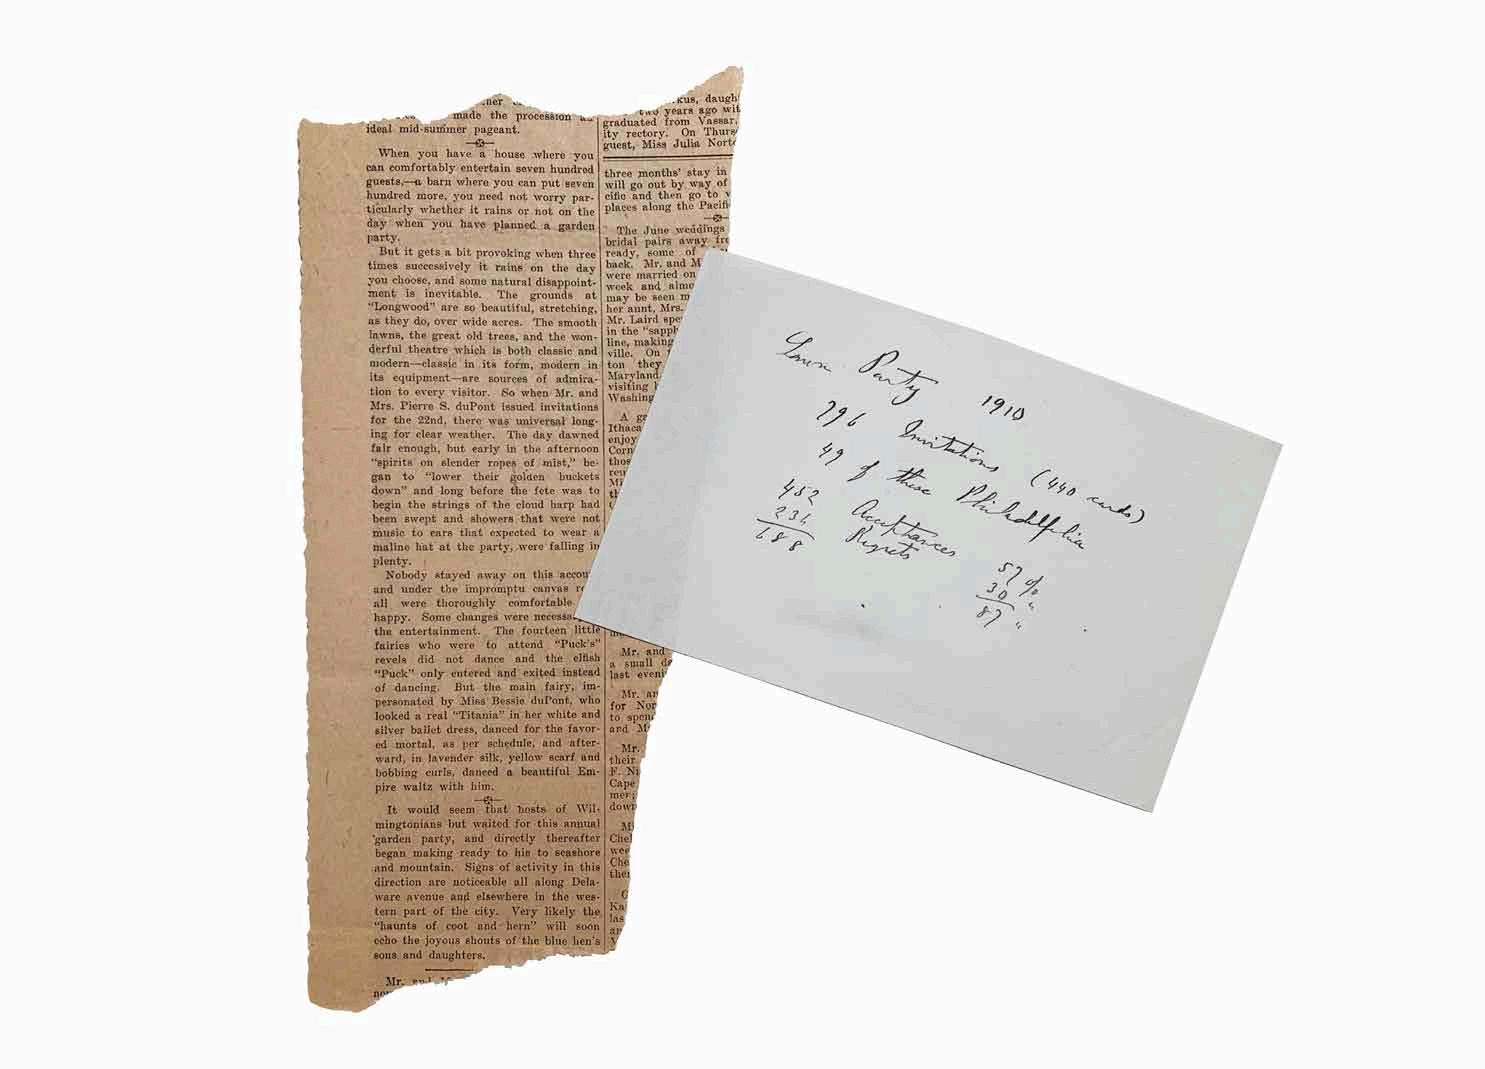 made the procession an
ideal mid-summer pageant.
When you have a house where you
can comfortably entertain seven hundred
guests,—a barn where you can put seven
hundred more, you need not worry par-
ticularly whether it rains or not on the
day when you have planned a garden
party.
But it gets a bit provoking when three
times successively it rains on the day
you choose, and some natural disappoint-
ment is inevitable. The grounds at
"Longwood" are so beautiful, stretching,
as they do, over wide acres. The smooth
lawns, the great old trees, and the won-
derful theatre which is both classic and
modern—classic in its form, modern in
its equipment—are sources of admira-
tion to every visitor. So when Mr. and
Mrs. Pierre S. duPont issued invitations
for the 22nd, there was universal long-
ing for clear weather. The day dawned
fair enough, but early in the afternoon
"spirits on slender ropes of mist," be-
gan to "lower their golden buckets
down" and long before the fete was to
begin the strings of the cloud harp had
been swept and showers that were not
music to ears that expected to wear a
maline hat at the party, were falling in
plenty.
Nobody stayed away on this accou
and under the impromptu canvas
all were thoroughly comfortable
happy. Some changes were necessa
the entertainment. The fourteen little
fairies who were to attend "Puck's"
revels did not dance and the elfish
"Puck" only entered and exited instead
of dancing. But the main fairy, im-
personated by Miss Bessie duPont, who
looked a real "Titania" in her white and
silver ballet dress, danced for the favor-
ed mortal, as per schedule, and after-
ward, in lavender silk, yellow scarf and
bobbing curls, danced a beautiful Em-
pire waltz with him.
It would seem that hosts of Wil-
mingtonians but waited for this annual
garden party, and directly thereafter
began making ready to hie to seashore
and mountain. Signs of activity in this
direction are noticeable all along Dela-
ware avenue and elsewhere in the wes-
tern part of the city. Very likely the
"haunts of coot and hern" will soon
echo the joyous shouts of the blue hen's
sons and daughters.
Mr. and
kus, daugh
two years ago wit
graduated from Vassar,
ity rectory. On Thurs
guest, Miss Julia Nort
three months' stay in
will go out by way of
cific and then go to
places along the Pacifi
The June weddings
bridal pairs away fr
ready, some of
back. Mr. and M
were married on
week and almo
may be seen m
her aunt, Mrs.
Mr. Laird spe
in the "sapph
line, making
ville. On
ton they
Maryland
visiting
Washing
A ga
Ithaca
enjoy
Corn
thos
Mr. and
a small d
last eveni
Mr. an
for Nor
to spen
and M
Mr.
their
F. Ni
Cape
mer;
down
Mi
Chel
wee
Che
ther
Ka
las
Lawn Party 1910
796 Invitations (440 cards)
49 of these Philadelphia
452 Acceptances 57 %
236 Regrets 30 "
688 87 "